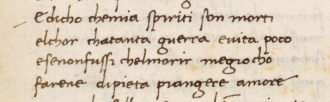 Et dicho che mia spiriti son morti
el chor chatanta guerra e vita poco
e senonfussi chel morir megiocho
farene dipieta piangere amore